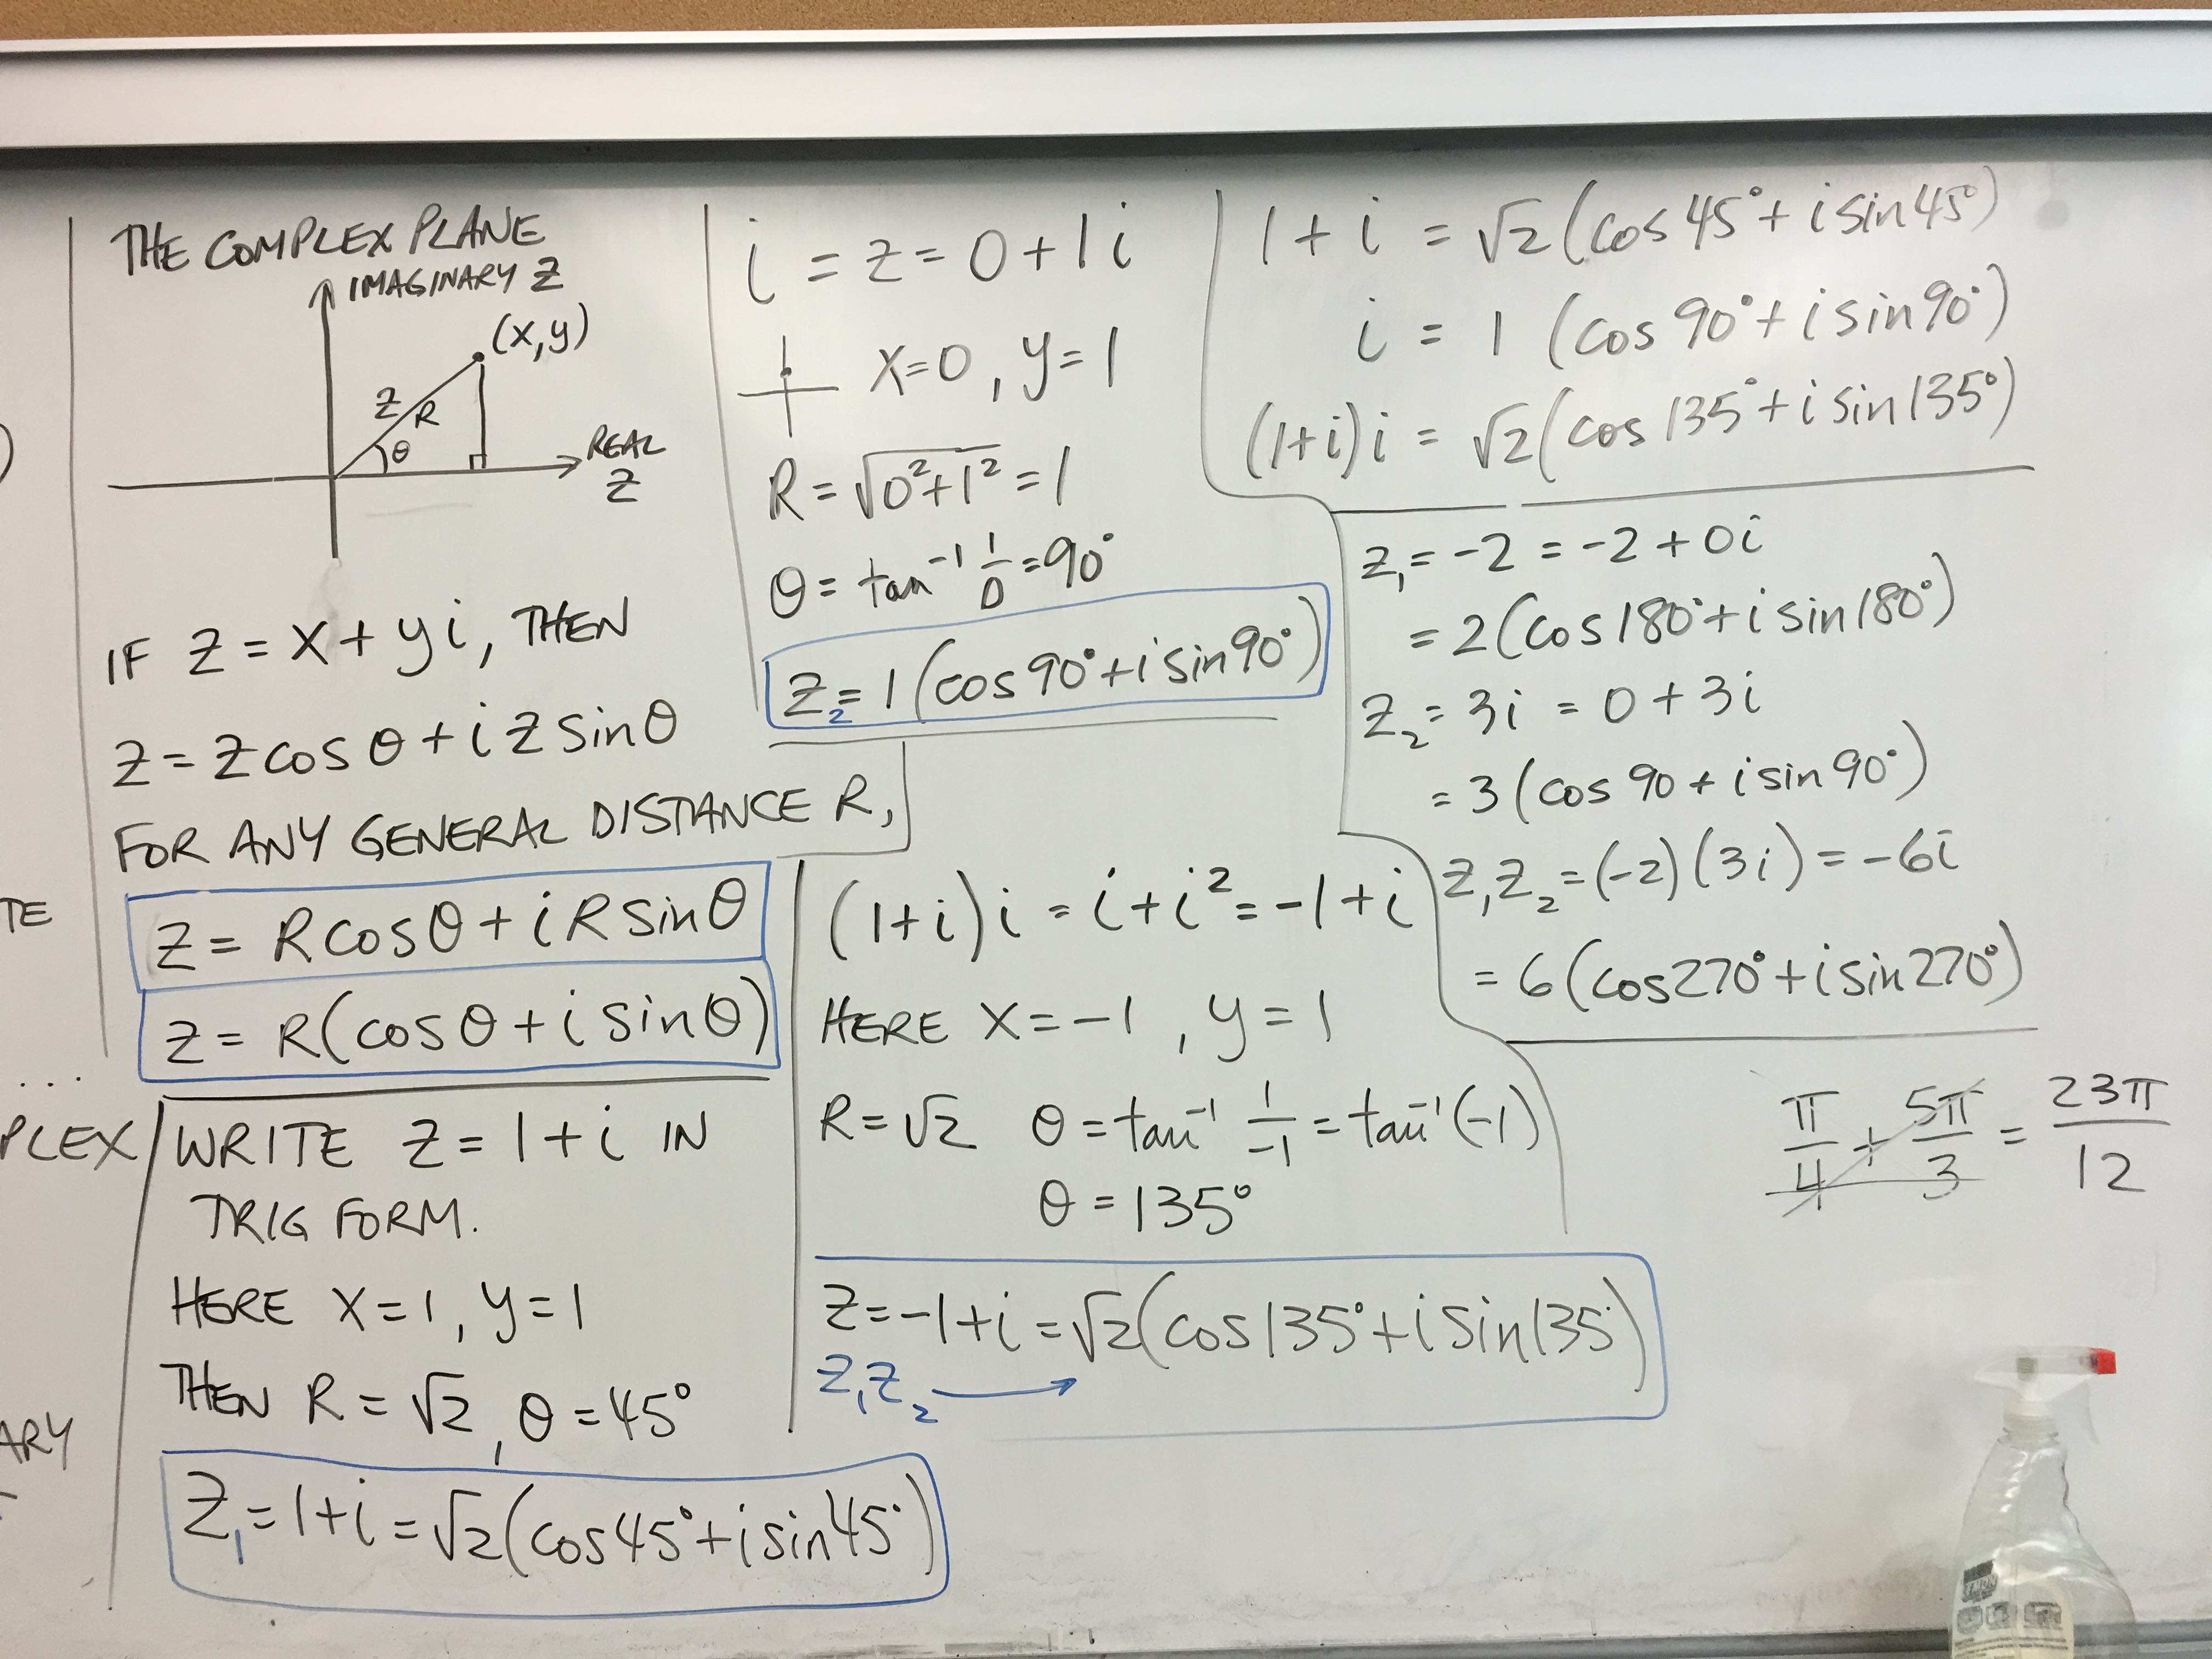 THE COMPLEX PLANE
IMAGINARY Z
(x,y)
Z
R
θ
REAL
Z
IF Z = x + yi, THEN
Z = Z cos θ + i Z sin θ
FOR ANY GENERAL DISTANCE R,
Z = R cos θ + i R sin θ
Z = R(cos θ + i sin θ)
TE
...
PLEX
ARY
WRITE Z = 1 + i IN
TRIG FORM.
HERE X = 1, y = 1
THEN R = √2, θ = 45°
Z₁ = 1+i = √2(cos 45° + i sin 45°)
i = Z = 0 + 1i
X=0, y=1
R = √0²+1² = 1
θ = tan⁻¹ 1/0 = 90°
Z₂ = 1(cos 90° + i sin 90°)
(1+i)i = i + i² = -1 + i
HERE X = -1, y = 1
R = √2 θ = tan⁻¹ 1/-1 = tan⁻¹(-1)
θ = 135°
Z = -1+i = √2(cos 135° + i sin 135°)
Z₁Z₂
1 + i = √2(cos 45° + i sin 45°)
i = 1 (cos 90° + i sin 90°)
(1+i)i = √2(cos 135° + i sin 135°)
Z₁ = -2 = -2 + 0i
= 2(cos 180° + i sin 180°)
Z₂ = 3i = 0 + 3i
= 3(cos 90 + i sin 90°)
Z₁Z₂ = (-2)(3i) = -6i
= 6(cos 270° + i sin 270°)
π/4 + 5π/3 = 23π/12